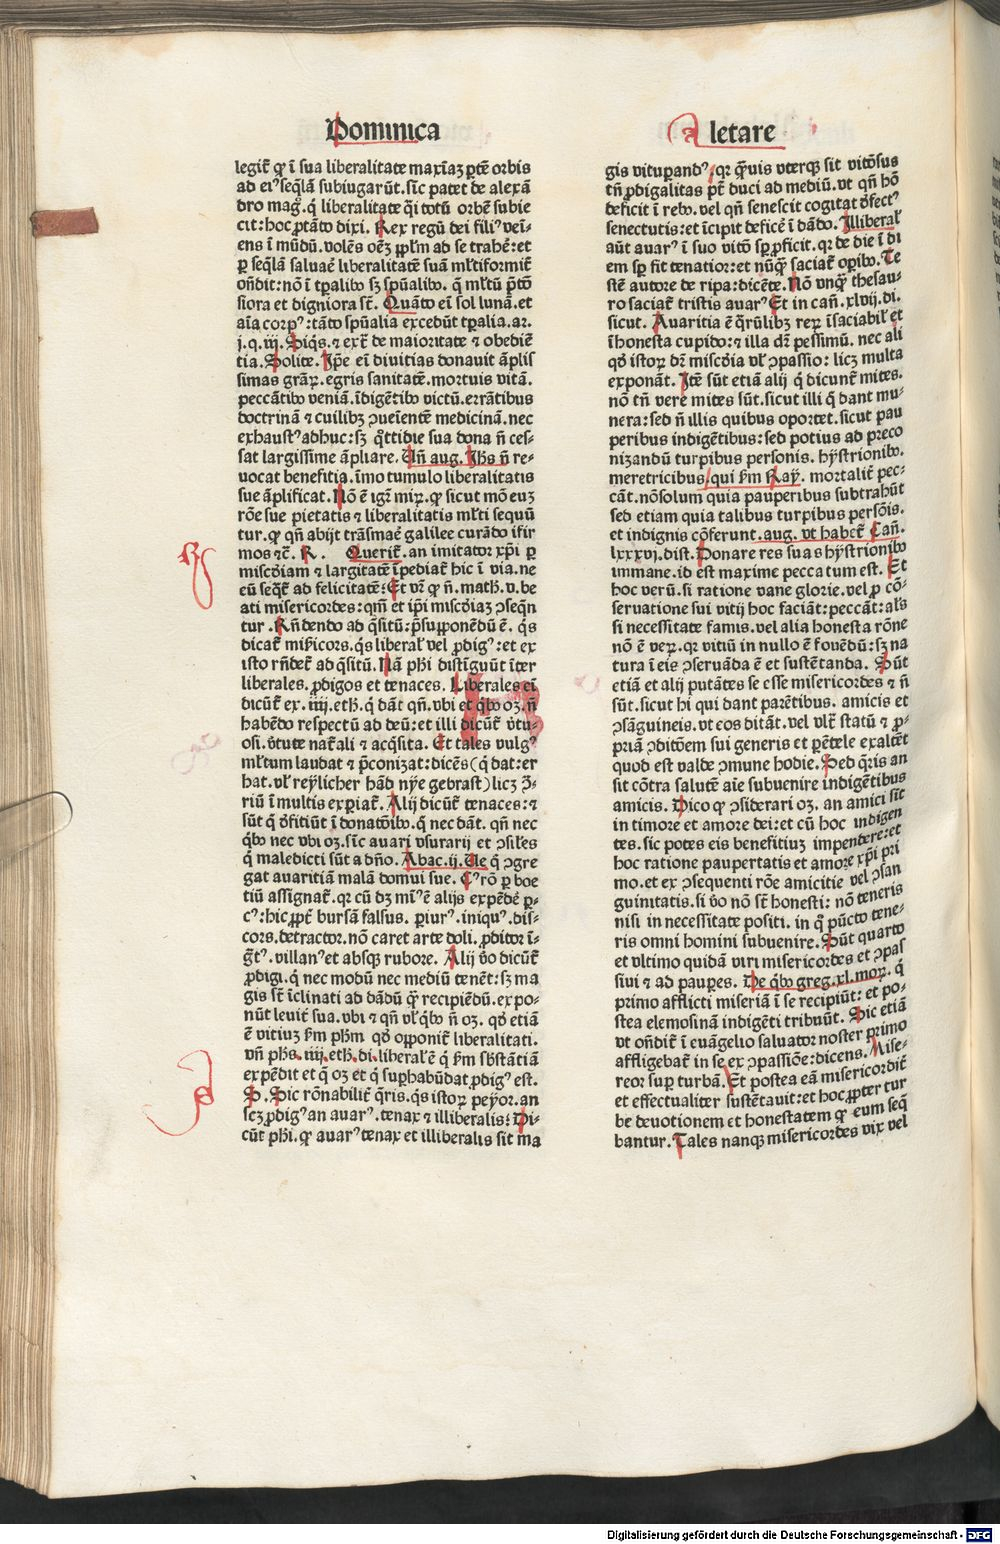 Dominica
legit̄ ꝙ ī sua liberalitate maxīaꝫ ꝑtē orbis
ad eiꝰ seq̄lā subiugarūt. sīc patet de alexā
dro mag̊. q̇ liberalitate q̄i totū orbē subie
cit: hoc ꝓtāto dixi. Rex regū dei filiꝰ veī-
ens ī mūdū. volēs oēꝫ ꝓp̄lm ad se trahē: et
ꝑ seq̄lā saluaē liberalitatē suā ml̄tiformit̄
on̄dit: nō ī tꝑalibꝰ sꝫ spūalibꝰ. q̇ ml̄tū p̄tō
siora et digniora st̄. Quāto eī sol lunā. et
aīa corpꝰ: tāto spūalia excedūt tꝑalia. ar.
j. q. iij. Siqs. ⁊ ext̄ de maioritate ⁊ obediē
tia. Solite. Ip̄e eī diuitias donauit āplis
simas gr̄aꝝ. egris sanitatē. mortuis vitā.
peccātibꝰ veniā. īdigētibꝰ victū. errātibus
doctrinā ⁊ cuilibꝫ ꝯueīentē medicinā. nec
exhaustꝰ adhuc: sꝫ q̊ttidie sua dona n̄ ces-
sat largissime āpliare. Un̄ aug. Ihs n̄ re-
uocat benefitia. īmo tumulo liberalitatis
sue āplificat. Nō ē igīt mirꝫ. ꝙ sicut mō euꝫ
rōe sue pietatis ⁊ liberalitatis ml̄ti sequū
tur. ꝙ qn̄ abijt trāsmaē galilee curādo īfir
mos ⁊c̄. R. Querit̄. an imitator xp̄i ꝑ
mis̄cdiam ⁊ largitatē īpediat̄ hic ī via. ne
eū seq̄t̄ ad felicitatē: Et vr̄ ꝙ n̄. math. v. be
ati misericordes: qm̄ et ip̄i mis̄cdiaꝫ ꝯseq̄n
tur. Rn̄dendo ad q̄sitū: p̄supponēdū ē. q̇s
dicat̄ mis̄icors. q̇s liberalꝰ vel ꝓdigꝰ: et ex
isto rn̄det̄ ad q̄sitū. Nā ph̄i distīguūt īter
liberales. ꝓdigos et tenaces. Liberales eī
dicūt̄ ex. iiij. eth. q̇ dāt qn̄. vbi et q̇bꝰ oꝫ. n̄
habēdo respectū ad deū: et illi dicūt̄ v̊tu-
osi. v̊tute nat̄ali ⁊ acq̇sita. Et tales vulgꝰ
ml̄tum laudat ⁊ p̄conizat: dicēs (q̇ dat: er
hat. vl̄ reylicher hād nye gebrast) licꝫ ꝯ-
riū ī multis exꝑiat̄. Alij dicūt̄ tenaces: ⁊
sūt q̇ d̊fitiūt ī donatōibꝰ. q̇ nec dāt. qn̄ nec
q̇bꝰ nec vbi oꝫ. sīc auari vsurarij et ꝯsiles
q̇ maledicti sūt a dn̄o. Abac. ij. Ue q̇ ꝯgre
gat auaritiā malā domui sue. Cꝰ rō ꝑ boe
tiū assignat̄. qꝛ cū dꝫ miꝰē alijs expēdē ꝑ-
cꝰ: hic ꝓpt̄ bursā falsus. periurꝰ. iniquꝰ. dis-
cors. detractor. nō caret arte doli. ꝓditor ī-
gr̄tꝰ. villanꝰ et absqꝫ rubore. Alij v̊o dicūt̄
ꝓdigi. q̇ nec modū nec mediū tenēt: sꝫ ma
gis st̄ īclinati ad dādū q̄ꝫ recipiēdū. expo-
nūt leuit̄ sua. vbi ⁊ qn̄ vl̄ q̇bꝰ n̄ oꝫ. qd̊ etiā
ē vitiuꝫ fm ph̄m qd̊ opponit̄ liberalitati.
vn̄ ph̄s. iiij. eth. di. liberalꝰ ē q̇ fm sb̄stātiā
expēdit et q̇ oꝫ et q̇ suꝑhabūdat ꝓdigꝰ est.
S. Sic rōnabilit̄ q̄ris. q̇s istoꝝ peyor. an
scꝫ ꝓdigꝰ an auarꝰ. tenax ⁊ illiberalis: Di-
cūt ph̄i. ꝙ auarꝰ tenax et illiberalis sit ma
A letare
gis vituꝑandꝰ. qꝛ q̄ꝫuis vterqꝫ sit vitōsus
tn̄ ꝓdigalitas pt̄ duci ad mediū. vt qn̄ hō
deficit ī rebꝰ. vel qn̄ senescit cogitat d̊fectꝰ
senectutis: et īcipit deficē ī dādo. Illiberalꝰ
aūt auarꝰ ī suo vitō sꝑ ꝓficit. qꝛ de die ī di
em sꝑ fit tenatior: et nūq̄ꝫ saciat̄ opibꝰ. Te
stē autore de ripa: dicēte. Nō vnq̄ꝫ thesau-
ro saciat̄ tristis auarꝰ Et in cañ. xlvij. di.
sicut. Auaritia ē q̄rūlibꝫ reꝝ īsaciabilꝰ et
īhonesta cupido: ⁊ illa dr̄ pessimū. nec ali
qd̊ istoꝝ dr̄ mis̄cdia vl̄ ꝯpassio: licꝫ multa
exponāt. Itē sūt etiā alij q̇ dicunt̄ mites.
nō tn̄ vere mites sūt. sicut illi q̇ dant mu-
nera: sed n̄ illis quibus oportet. sicut pau
peribus indigētibus: sed potius ad preco
nizandū turpibus personis. hystrionibꝰ.
meretricibus. qui fm Ray. mortalit̄ pec-
cāt. nōsolum quia pauperibus subtrahūt
sed etiam quia talibus turpibus persōis.
et indignis cōferunt. aug. vt habet̄ Cañ.
lxxxvj. dist. Donare res suas hystrionibꝰ
immane. id est maxime peccatum est. Et
hoc verū. si ratione vane glorie. vel ꝓ cō-
seruatione sui vitij hoc faciāt: peccāt: al̄s
si necessitate famis. vel alia honesta rōne
nō ē veꝝ. qꝛ vitiū in nullo ē fouēdū: sꝫ na
tura ī eis ꝯseruāda ē et sustētanda. Sūt
etiā et alij putātes se esse misericordes ⁊ n̄
sūt. sicut hi qui dant parētibus. amicis et
ꝯsāguineis. vt eos ditāt. vel vlt̄ statū ⁊ ꝓ-
priā ꝯditōem sui generis et parētele exaltēt
quod est valde ꝯmune hodie. Sed q̄ris an
sit cōtra salutē aīe subuenire indigētibus
amicis. Dico ꝙ ꝯsiderari oꝫ. an amici sīt
in timore et amore dei: et cū hoc indigen
tes. sic potes eis benefitiuꝫ impendere: et
hoc ratione paupertatis et amore xp̄i pri
mo. et ex ꝯsequenti rōe amicitie vel ꝯsan
guinitatis. si v̊o nō st̄ honesti: nō teneris
nisi in necessitate positi. in q̊ pūcto tene-
ris omni homini subuenire. Sūt quarto
et vltimo quidā viri misericordes et ꝯpas
siui ⁊ ad pauꝑes. De q̇bꝰ greg. xl. moꝝ. q̇
primo afflicti miseriā ī se recipiūt: et po-
stea elemosinā indigēti tribuūt. Sic etiā
vt on̄dit̄ ī euāgelio saluator noster primo
affligebat̄ in se ex ꝯpassiōe: dicens. Mise-
reor suꝑ turbā. Et postea eā misericordit̄
et effectualiter sustētauit: et hoc ꝓpter tur
be deuotionem et honestatem ꝙ eum seq̄
bantur. Tales nanqꝫ misericordes vix vel
Digitalisierung gefördert durch die Deutsche Forschungsgemeinschaft - DFG